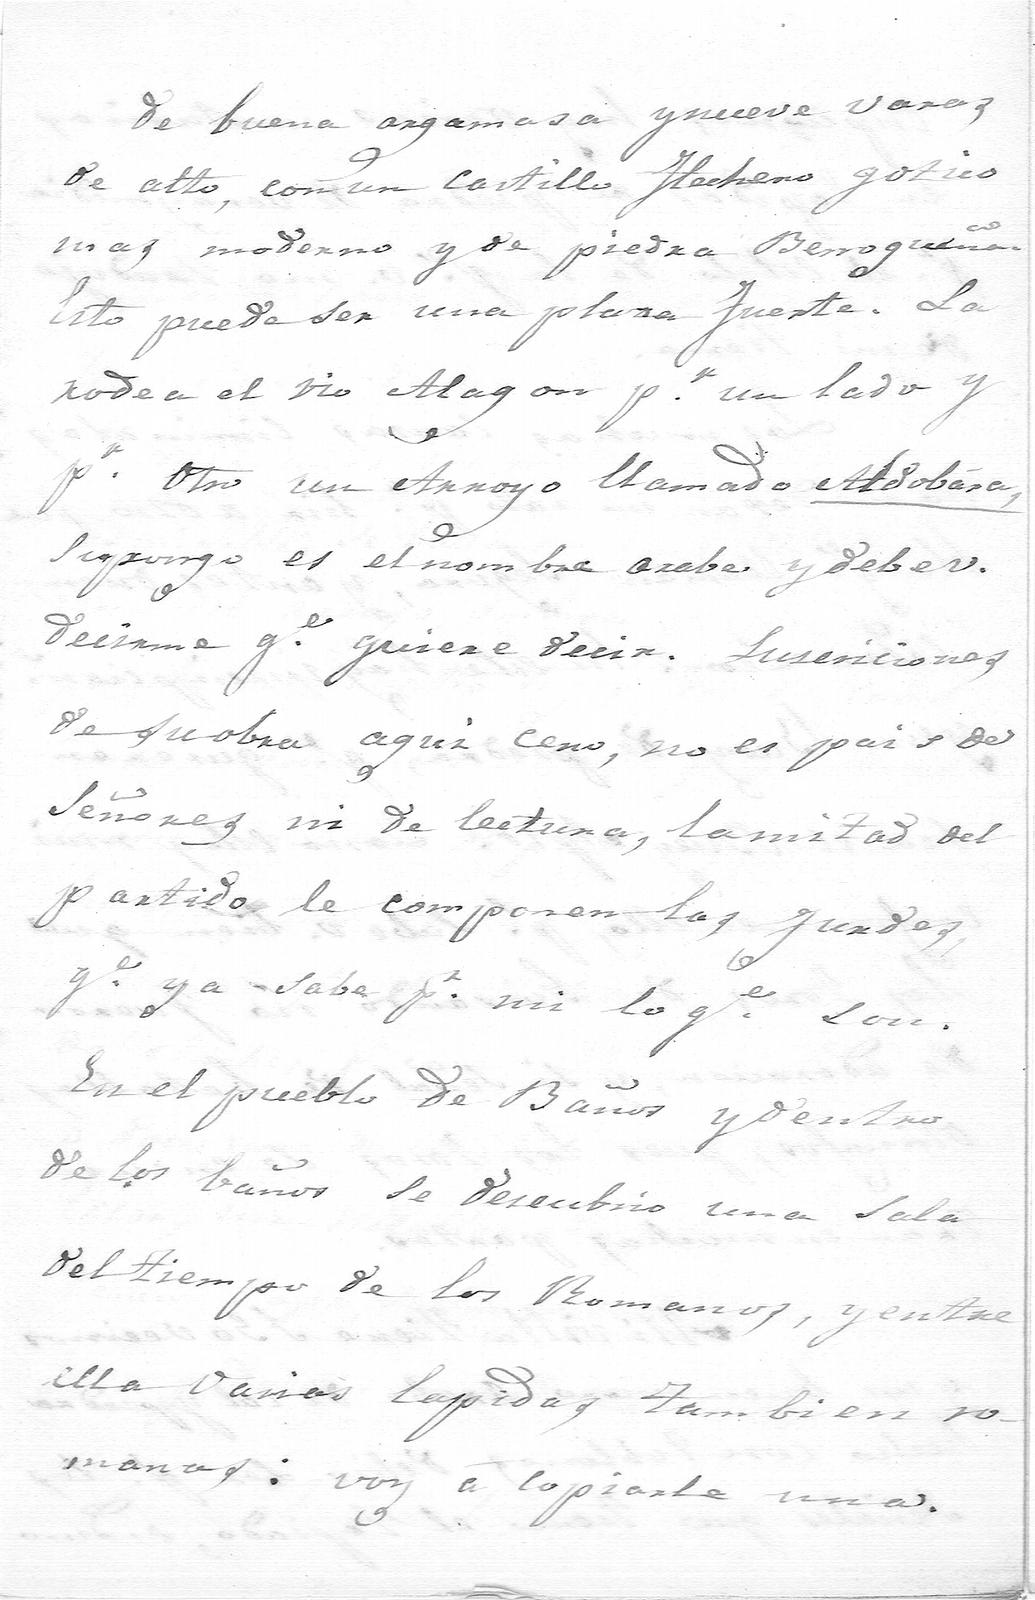 de buena argamasa y nueve varas
de alto, con un Castillo Flechero gotico
mas moderno y de piedra Berroqueña.
Esto puede ser una plaza Fuerte. La
rodea el rio Alagon p.r un lado y
p.r Otro un Arroyo llamado Aldobára,
supongo es el nombre arabe y debe v.
decirme q.e quiere decir. Suscriciones
de su obra aqui cero, no es pais de
Señores ni de lectura, la mitad del
partido le componen las Jurdes,
q.e ya sabe p.r mi lo q.e son.
En el pueblo de Baños y dentro
de los baños se descubrio una sala
del tiempo de los Romanos, y entre
ella varias lapidas tambien ro-
manas: voy á copiarle una.